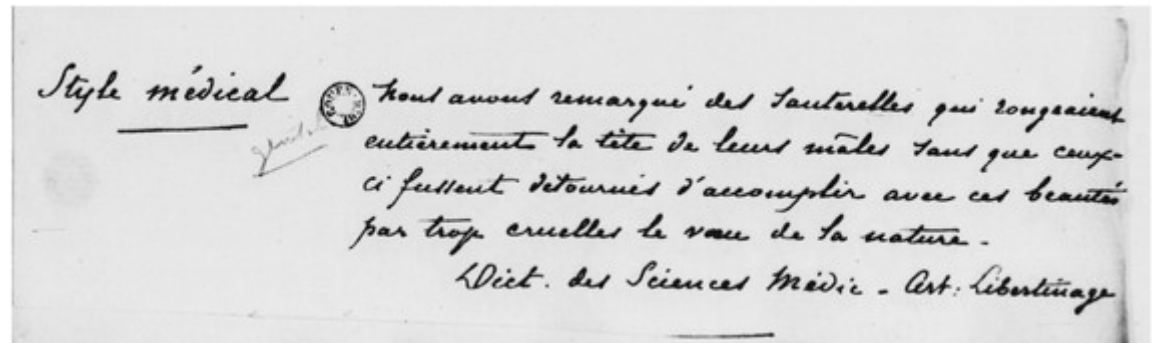 Style médical
Nous avons remarqué des sauterelles qui rongeaient
entièrement la tête de leurs mâles sans que ceux-
ci fussent détournés d'accomplir avec ces beautés
par trop cruelles le vœu de la nature.
Dict. des Sciences Médic - Art: Libertinage